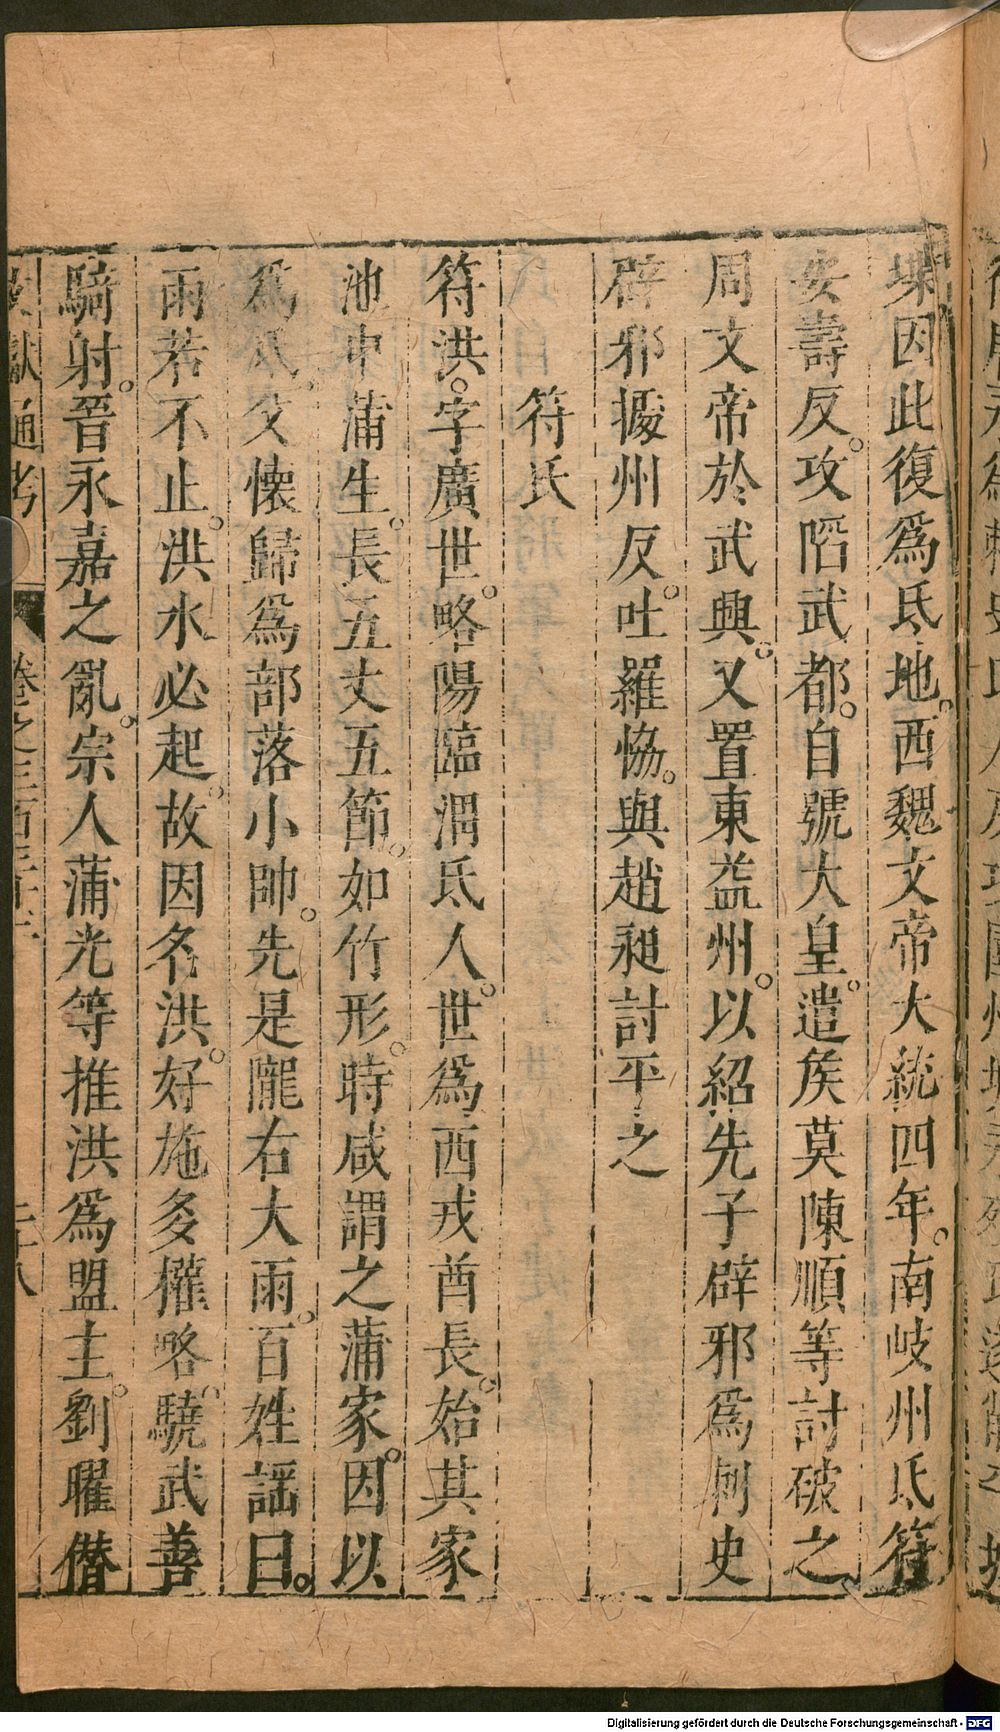 堞因此復爲氐地。西魏文帝大統四年。南岐州氐符
安壽反。攻䧟武都。自號大皇。遣矦莫陳順等討破之
周文帝於武興。又置東益州。以紹先子辟邪爲刺史
辟邪據州反。吐羅恊。與趙昶討平之
符氐
符洪。字廣世。略陽臨渭氐人。世爲西戎酋長。始其家
池中蒲生。長五丈五節。如竹形。時咸謂之蒲家。因以
爲氏。父懷歸爲部落小帥。先是隴右大雨。百姓謡曰。
雨若不止。洪水必起。故因名洪。好施多權略。驍武善
騎射。晉永嘉之亂。宗人蒲光等推洪爲盟主。劉曜僣
文獻通考 卷之三百三十三 二十八
Digitalisierung gefördert durch die Deutsche Forschungsgemeinschaft - DFG